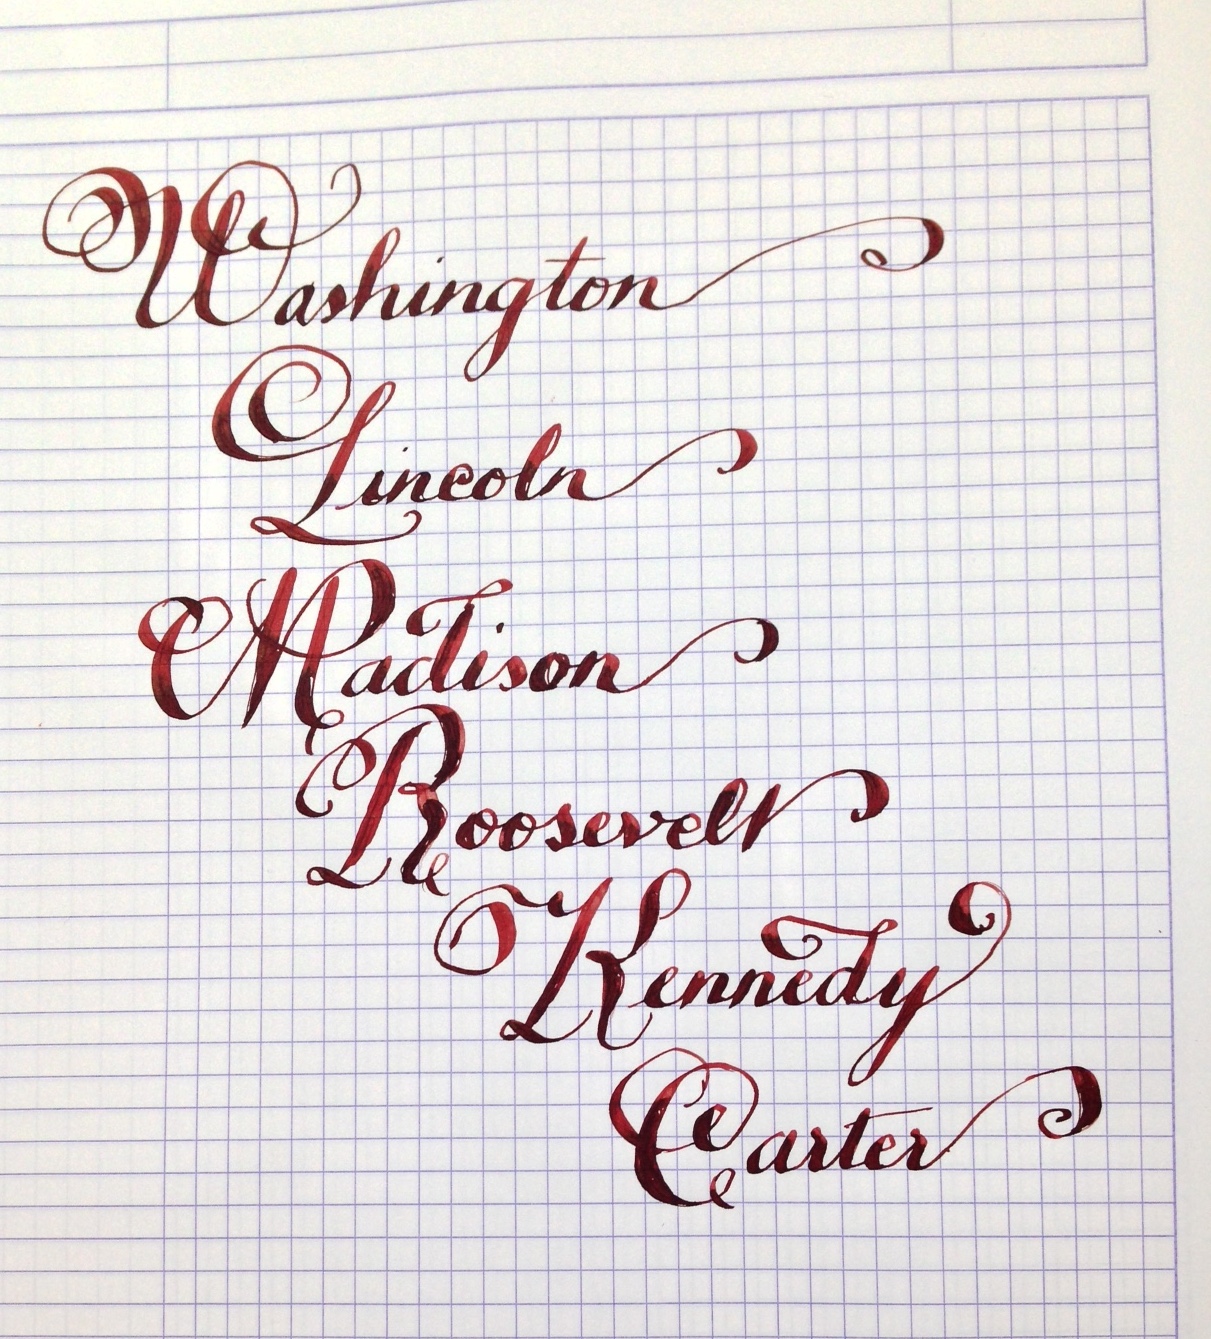 Washington
Lincoln
Madison
Roosevelt
Kennedy
Carter